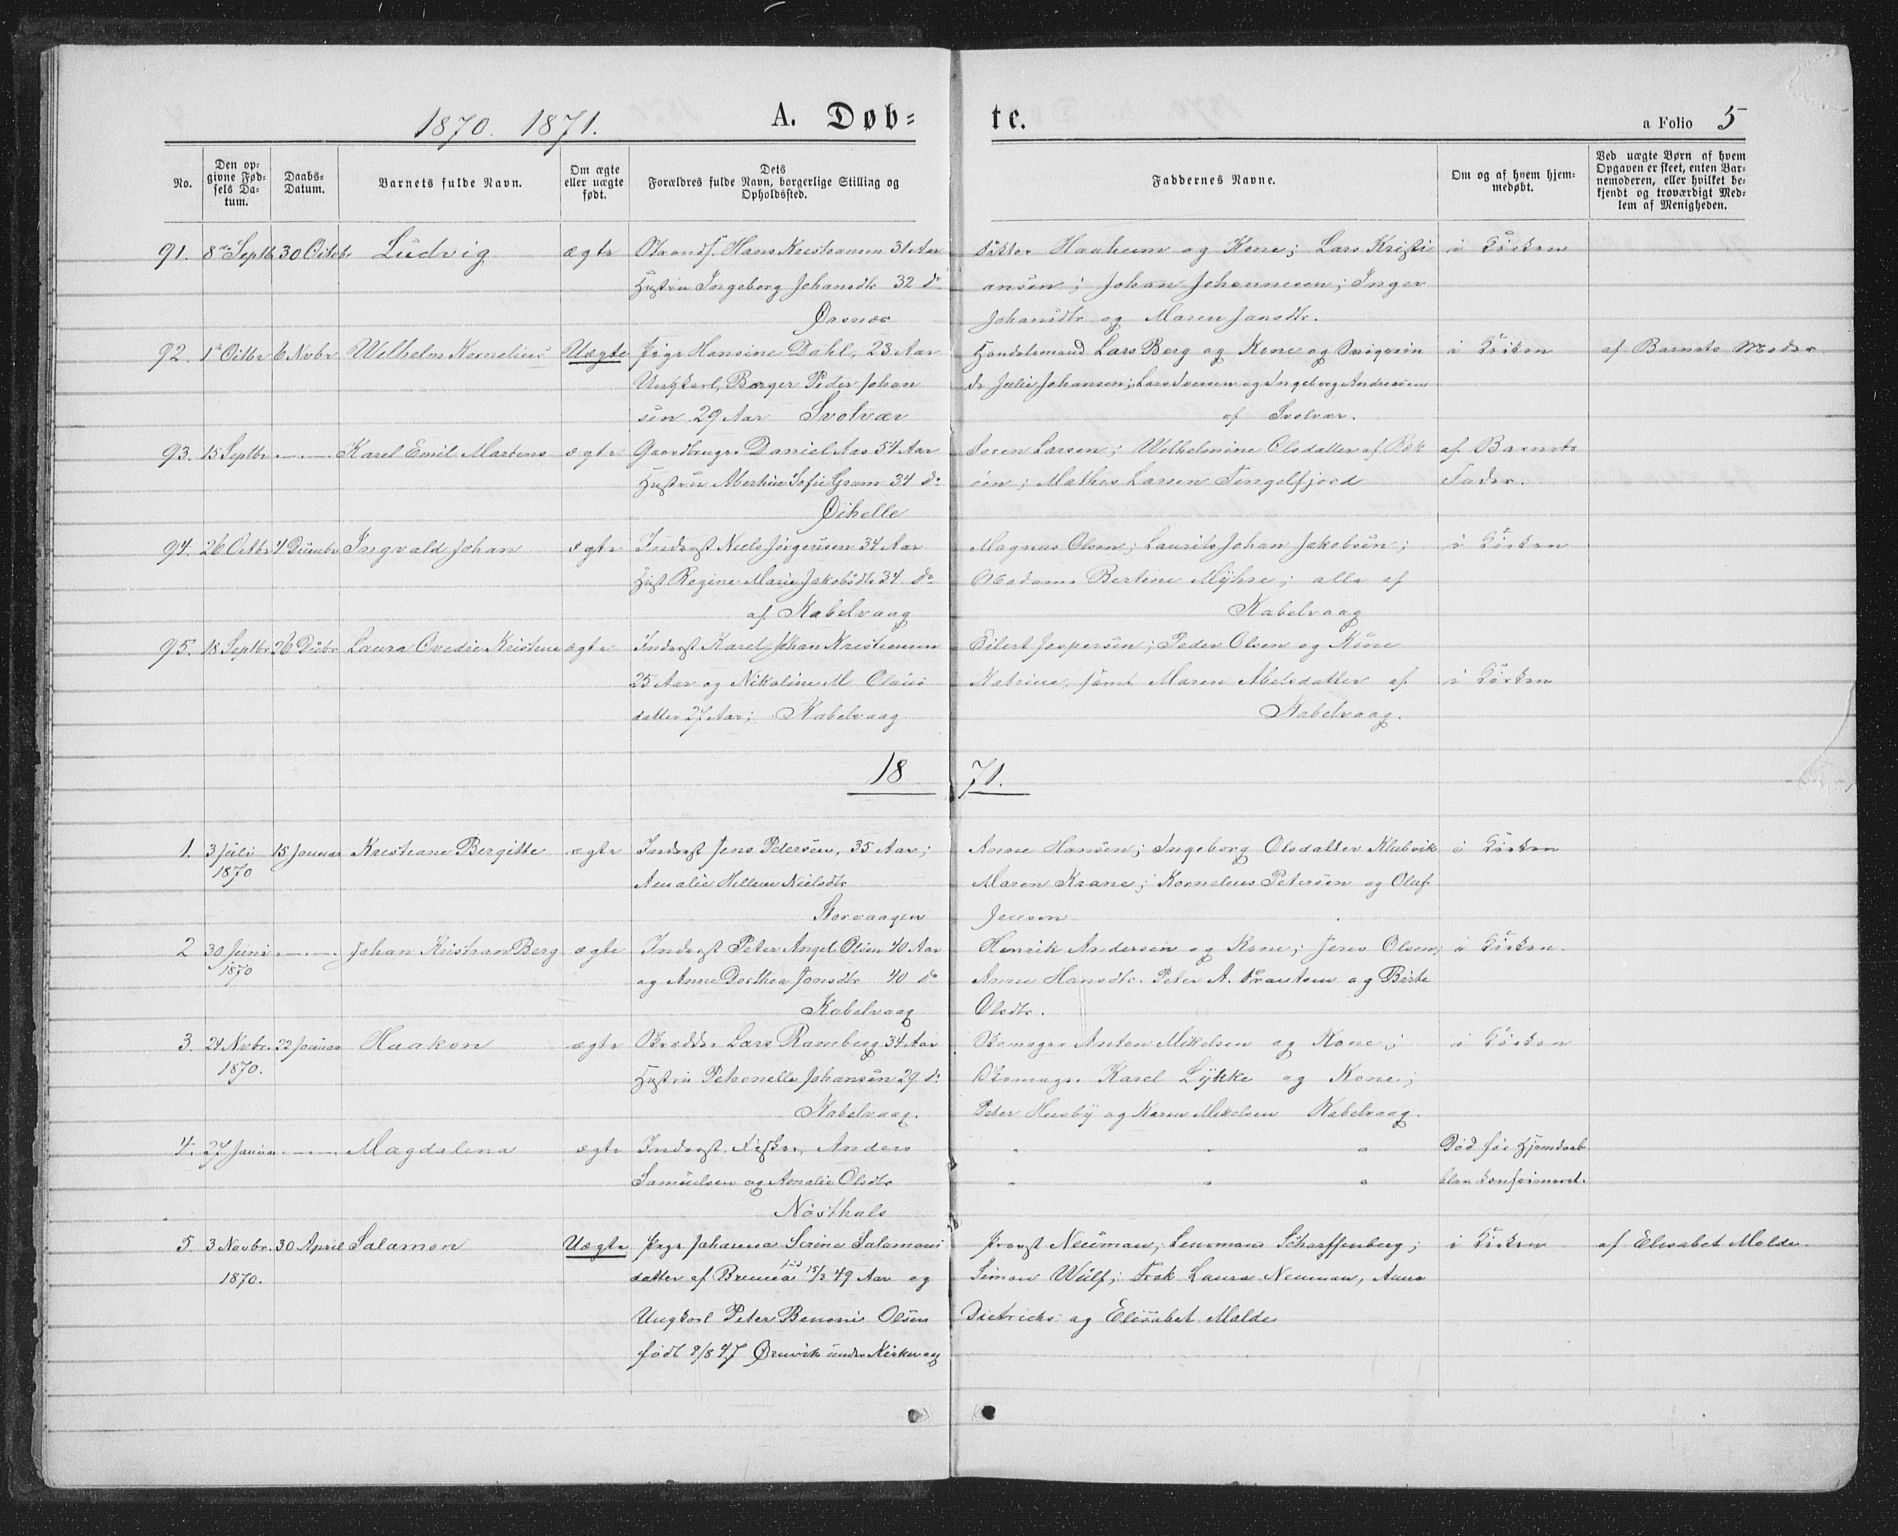 1870. 1871.
A. Døb=
te.
a Folio 5
No.
Den op=
givne Fød=
sels Da=
tum.
Daabs=
Datum.
Barnets fulde Navn.
Om ægte
eller uægte
født.
Dets
Forældres fulde Navn, borgerlige Stilling og
Opholdssted.
Faddernes Navne.
Om og af hvem hjem=
medøbt.
Ved uægte Børn af hvem
Opgaven er skeet, enten Bar=
nemoderen, eller hvilket be=
kjendt og troværdigt Med=
lem af Menigheden.
91. 8de Septbr 30 Octobr Ludvig ægte Hans Kristiansen 31 Aar
Hustru Ingeborg Johansdtr 32 do
Haaheim og Kone; Lars Kristi
ansen; Johan Johannesen; Inger
Johansdtr og Maren Jansdtr.
92. 1ste Octbr 6 Novbr Wilhelm Kornelius Uægte Pige Hansine Dahl, 23 Aar
Ungkarl, Borger Peder Johan
sen 29 Aar Svolvær
Handelsmand Lars Berg og Kone og
Julie Johansen; Lars Iversen og Ingeborg Andreasen
af Svolvær.
af Barnets Moder
93. 15 Septbr —"— Karel Emil Martens ægte Gaardbruger Daniel Aas 54 Aar
Hustru Sofie Gram 34 do
Øihelle
Søren Larsen; Wilhelmine Olsdatter af
; Mathes Larsen Tengelfjord
af Barnets
Fader.
94. 26 Octbr 4 Decembr Ingvald Johan ægte Inderst Niels Jørgensen 34 Aar
Hust Regine Marie Jakobsdtr 34 do
af Kabelvaag
Magnus Olsen; Laurits Johan Jakobsen;
Madame Bertine Myhre; alle af
Kabelvaag
95. 18 Septbr 26 Decbr Laura Ovedie Kristine ægte Inderst Karel Johan Kristiansen
25 Aar og Nikoline M. Olaus
datter 27 Aar; Kabelvaag
Eilert Jespersen; Peder Olsen og Kone
Katrine, samt Maren Abelsdatter af
Kabelvaag.
1871.
1. 3 Juli 15 Januar Kristiane Bergitte ægte Inderst Jens Pedersen, 35 Aar;
1870
Amalie Hellene Nielsdtr
Storvaagen
Anne Hansen; Ingeborg Olsdatter Klubvik
Maren Krane; Kornelius Petersen og Oluf
Jensen
2 30 Juni —"— Johan Kristian Berg ægte Inderst Peter Angel Olsen 40 Aar
1870
og Anne Dorthea Jonsdtr 40 do
Kabelvaag
Henrik Andersen og Kone; Jens Olsen;
Anne Hansdtr. Peter A. Frantsen og Berte
Olsdtr.
3. 24 Novbr. 22 Januar Haakon ægte Lars Ramberg 34 Aar
1870.
Hustru Petronelle Johansen 29 do
Kabelvaag.
Skomager Anton Mikelsen og Kone;
Skomager Karel Lykke og Kone;
Peter Husby og Karen Mikelsen Kabelvaag.
4. 27 Januar —"— Magdalena ægte Inderst Fisker, Anders
Samuelsen og Amalie Olsdtr
Nøsthals
" " "
" " "
Død før Hjemdaab
blev konfirmeret.
5. 3 Novbr. 30 April Salamon Uægte Pige Johanna Serine Salamons
1870.
datter af Bremsø fød 15/3 49 Aar og
Ungkarl Peter Benoni Olsen
født 9/8 47 Ørnvik under Kirkevaag
Provst Neuman, Lensman Scharffenberg;
Simon Wulf; Frøk Laura Neuman, Anna
Dietrichs og Elisabet Molde
af Elisabet Molde